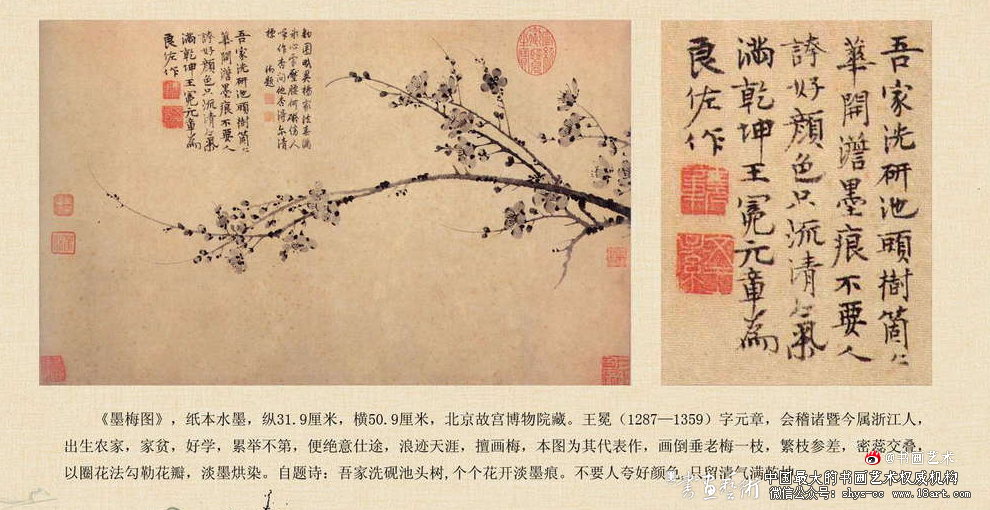 吾家洗研池頭樹箇〻
華開澹墨痕不要人
誇好顏色只流清氣
滿乾坤王冕元章為
良佐作
吾家洗研池頭樹箇〻
華開澹墨痕不要人
誇好顏色只流清〻氣
滿乾坤王冕元章為
良佐作
《墨梅图》，纸本水墨，纵31.9厘米，横50.9厘米，北京故宫博物院藏。王冕（1287—1359）字元章，会稽诸暨今属浙江人，
出生农家，家贫，好学，累举不第，便绝意仕途，浪迹天涯，擅画梅，本图为其代表作，画倒垂老梅一枝，繁枝参差，密蕊交叠，
以圈花法勾勒花瓣，淡墨烘染。自题诗：吾家洗砚池头树,个个花开淡墨痕。不要人夸好颜色,只留清气满乾坤
@书画艺术
書畫藝術
中国最大的书画艺术权威机构
微信公众号：shys-cc www.18art.com